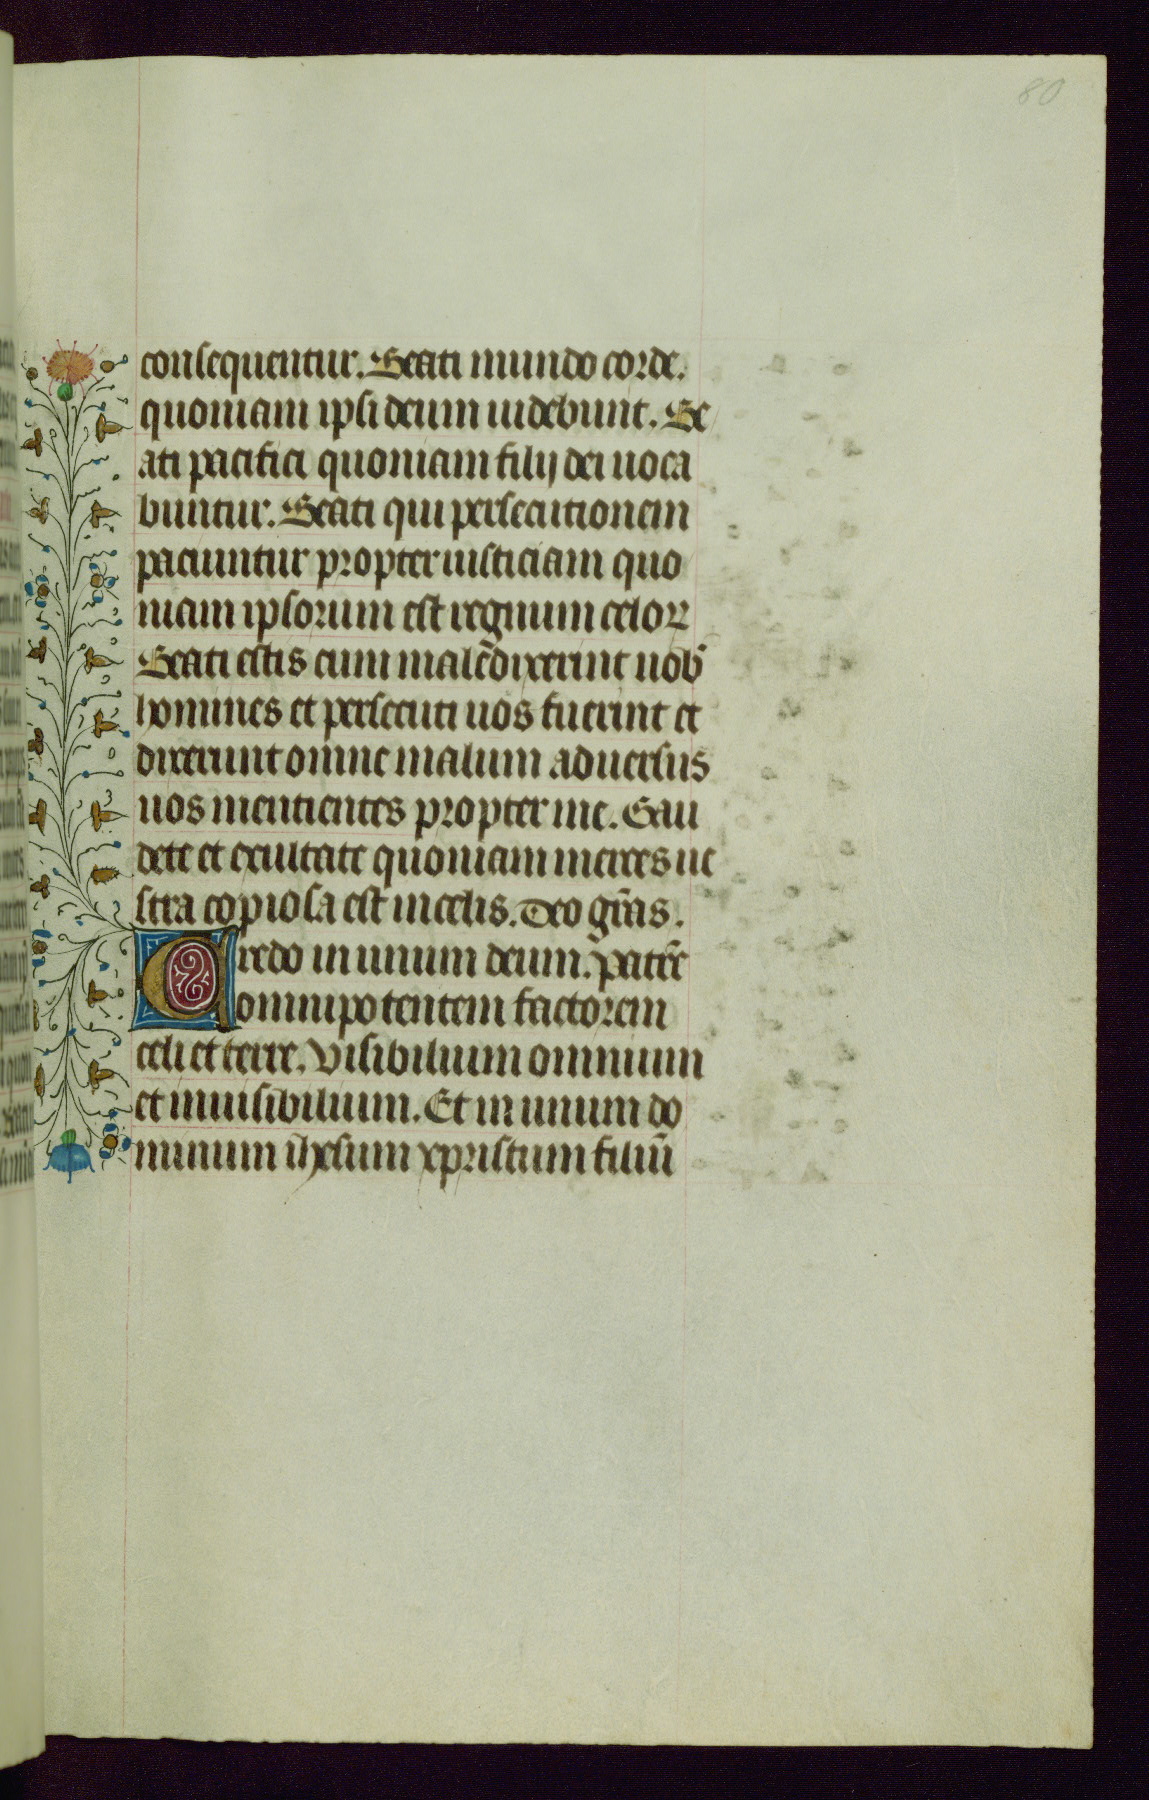 80
consequentur. Beati mundo corde.
quoniam ipsi deum uidebunt. Be
ati pacifici quoniam filij dei uoca
buntur. Beati qui persecutionem
paciuntur propter iusticiam quo
niam ipsorum est regnum celoꝝ
Beati estis cum maledixerint uob̄
homines et persecuti uos fuerint et
dixerunt omne malum aduersus
uos mentientes propter me. Gau
dete et exultate quoniam merces ue
stra copiosa est in celis. Deo gr̄as.
Credo in unum deum. patrē
omnipotentem factorem
celi et terre. Visibilium omnium
et inuisibilium. Et in unum do
minum ihesum xpristum filiū